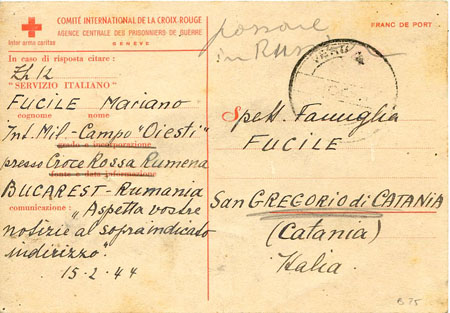 COMITÉ INTERNATIONAL DE LA CROIX-ROUGE
AGENCE CENTRALE DES PRISONNIERS DE GUERRE
GENÈVE
Inter arma caritas
FRANC DE PORT
passare
in
In caso di risposta citare :
Zh 12
"SERVIZIO ITALIANO"
FUCILE Mariano
cognome nome
Int. Mil - Campo "Oiesti"
grado e incorporazione
presso Croce Rossa Rumena
fonte e data informazione
BUCAREST - Rumania
comunicazione : „Aspetta vostre
notizie al sopraindicato
indirizzo".
15-2-44
Spett. Famiglia
FUCILE
San GREGORIO di CATANIA
(Catania)
Italia.
B 75